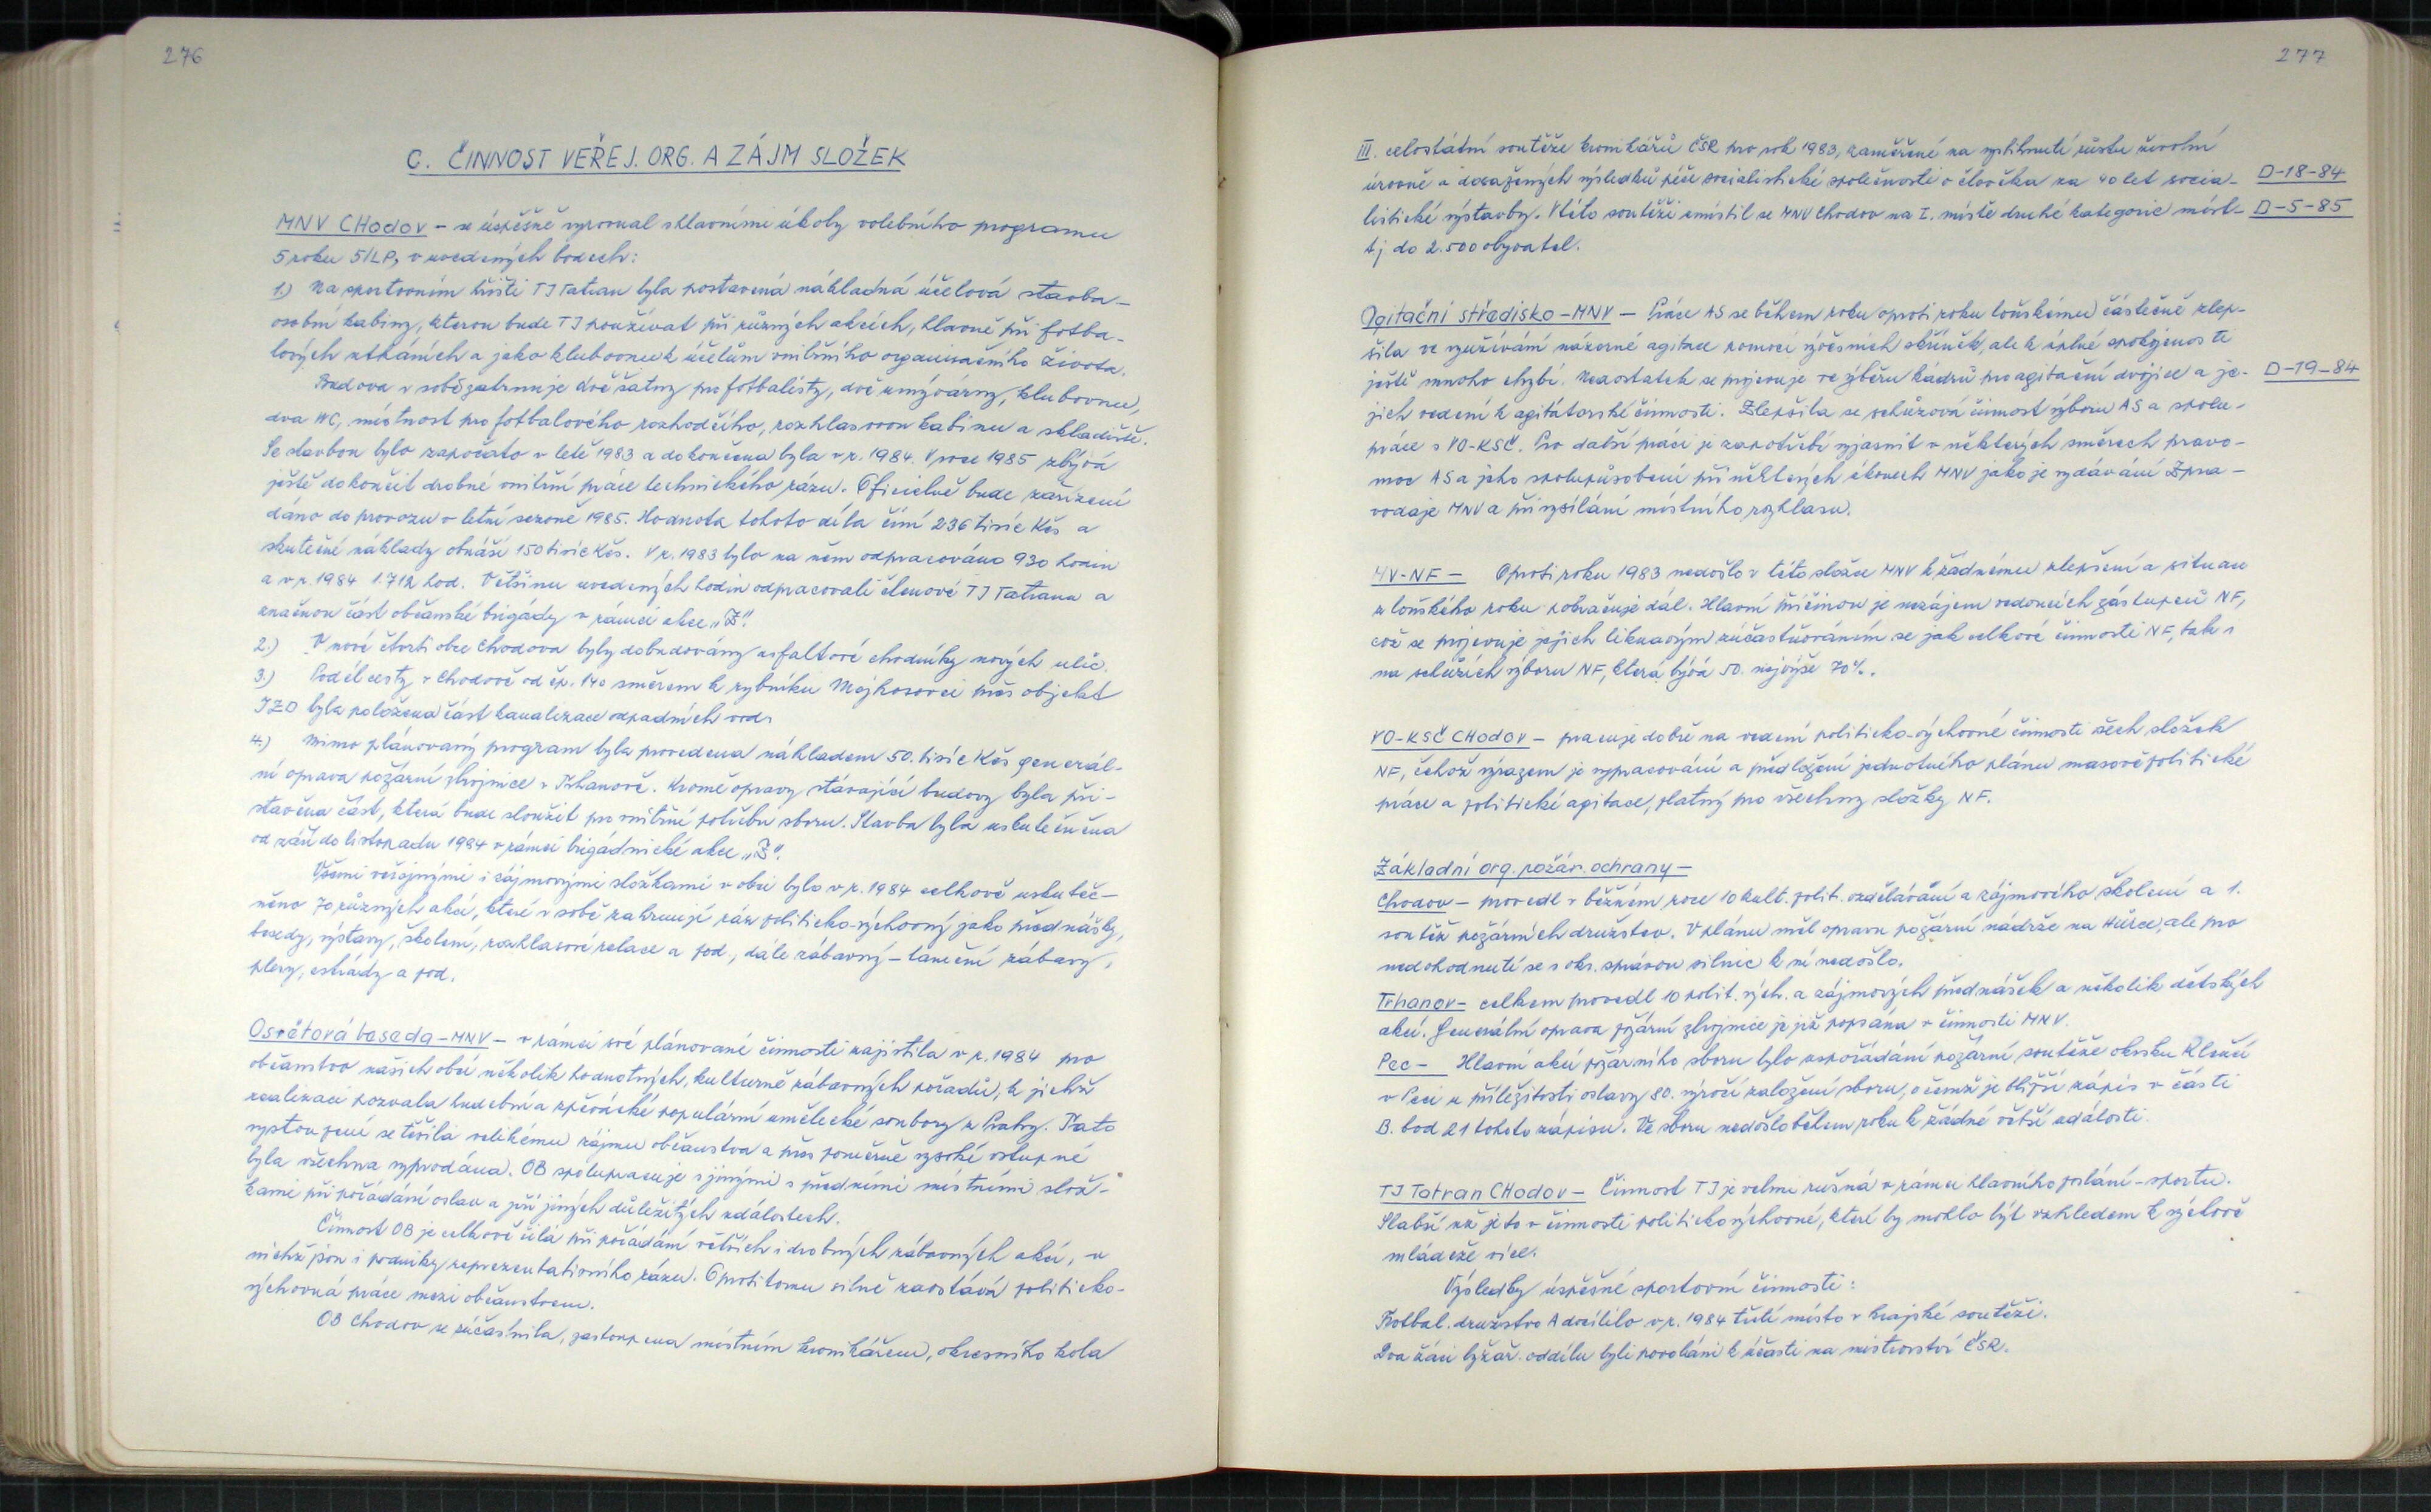 276
C. ČINNOST VEŘEJ. ORG. A ZÁJM SLOŽEK
MNV CHodov – se úspěšně vyrovnal s hlavními úkoly volebního programu
5 roku 5/LP, v uvedených bodech:
1.) Na sportovním hřišti TJ Tatran byla postavená nákladná účelová stavba-
osobní kabiny, kterou bude TJ používat při různých akcích, hlavně při fotba-
lových utkáních a jako klubovnu k účelům vnitřního organisačního života.
Budova v sobě zahrnuje dvě šatny pro fotbalisty, dvě umývárny, klubovnu,
dva WC, místnost pro fotbalového rozhodčího, rozhlasovou kabinu a skladiště.
Se stavbou bylo započato v létě 1983 a dokončena byla v r. 1984. V roce 1985 zbývá
ještě dokončit drobné vnitřní práce technického rázu. Oficielně bude zařízení
dáno do provozu v letní sezoně 1985. Hodnota tohoto díla činí 236 tisíc Kčs a
skutečné náklady obnáší 150 tisíc Kčs. V r. 1983 bylo na něm odpracováno 930 hodin
a v r. 1984 1.712 hod. Většinu uvedených hodin odpracovali členové TJ Tatranu a
značnou část občanské brigády v rámci akce „Z".
2.) V nové čtvrti obce Chodova byly dobudovány asfaltové chodníky nových ulic.
3.) Podél cesty v Chodově od čp. 140 směrem k rybníku Mejkosovci přes objekt
JZD byla položena část kanalizace odpadních vod.
4.) Mimo plánovaný program byla provedena nákladem 50. tisíc Kčs generál-
ní oprava požární zbrojnice v Trhanově. Kromě opravy stávající budovy byla při-
stavěna část, která bude sloužit pro vnitřní potřebu sboru. Stavba byla uskutečněna
od září do listopadu 1984 v rámci brigádnické akce „Z".
Všemi veřejnými i zájmovými složkami v obci bylo v r. 1984 celkově uskuteč-
něno 70 různých akcí, které v sobě zahrnují ráz politicko-výchovný jako přednášky,
besedy, výstavy, školení, rozhlasové relace a pod, dále zábavný – taneční zábavy,
plesy, estrády a pod.
Osvětová beseda-MNV – v rámci své plánované činnosti zajistila v r. 1984 pro
občanstvo našich obcí několik hodnotných, kulturně zábavných pořadů, k jichž
realizaci pozvala hudební a pěvácké populární umělecké soubory z Prahy. Tato
vystoupení se těšila velikému zájmu občanstva a přes poměrně vysoké vstupné
byla všechna vyprodána. OB spolupracuje s jinými s předními místními slož-
kami při pořádání oslav a při jiných důležitých událostech.
Činnost OB je celkově čilá při pořádání větších i drobných zábavných akcí, z
nichž jsou i podniky reprezentativního rázu. Oproti tomu silně zaostává politicko-
výchovná práce mezi občanstvem.
OB Chodov se zúčastnila, zastoupena místním kronikářem, okresního kola
277
III. celostátní soutěže kronikářů ČSR pro rok 1983, zaměřené na vystihnutí růstu životní
úrovně a dosažených výsledků péče socialistické společnosti o člověka za 40 let socia- D-18-84
listické výstavby. V této soutěži umístil se MNV Chodov na I. místě druhé kategorie míst- D-5-85
tj do 2.500 obyvatel.
Agitační středisko-MNV – Práce AS se během roku oproti roku loňskému částečně zlep-
šila ve využívání názorné agitace pomocí vývěsních skříněk, ale k úplné spokojenosti
ještě mnoho chybí. Nedostatek se projevuje ve výběru kádrů pro agitační dvojice a je- D-19-84
jich vedení k agitátorské činnosti. Zlepšila se schůzová činnost výboru AS a spolu-
práce s VO-KSČ. Pro další práci je zapotřebí vyjasnit v některých směrech pravo-
moc AS a jeho spolupůsobení při některých úkonech MNV jako je vydávání Zpra-
vodaje MNV a při vysílání místního rozhlasu.
MV-NF – Oproti roku 1983 nedošlo v této složce MNV k žádnému zlepšení a situace
z loňského roku pokračuje dál. Hlavní příčinou je nezájem vedoucích zástupců NF,
což se projevuje jejich liknavým zúčastňováním se jak celkové činnosti NF, tak i
na schůzích výboru NF, která bývá 50. nejvýše 70%.
VO-KSČ CHodov – pracuje dobře na vedení politicko-výchovné činnosti všech složek
NF, čehož výrazem je vypracování a předložení jednotného plánu masově politické
práce a politické agitace, platný pro všechny složky NF.
Základní org. požár. ochrany –
Chodov – provedl v běžném roce 10 kult. polit. vzdělávání a zájmového školení a 1.
soutěž požárních družstev. V plánu měl opravu požární nádrže na Hůrce, ale pro
nedohodnutí se s okr. správou silnic k ní nedošlo.
Trhanov – celkem provedl 10 polit. vých. a zájmových přednášek a několik dětských
akcí. Generální oprava požární zbrojnice je již popsána v činnosti MNV.
Pec – Hlavní akcí požárního sboru bylo uspořádání požární soutěže okrsku Klenčí
v Peci u příležitosti oslavy 80. výročí založení sboru, o čemž je bližší zápis v části
B. bod 21 tohoto zápisu. Ve sboru nedošlo během roku k žádné větší události.
TJ Tatran CHodov – Činnost TJ je velmi rušná v rámci hlavního poslání – sportu.
Slabší už je to v činnosti politicko výchovné, které by mohlo být vzhledem k výchově
mládeže více.
Výsledky úspěšné sportovní činnosti:
Fotbal. družstvo A docílilo v r. 1984 třetí místo v krajské soutěži.
Dva žáci lyžař. oddílu byli povoláni k účasti na mistrovství ČSR.